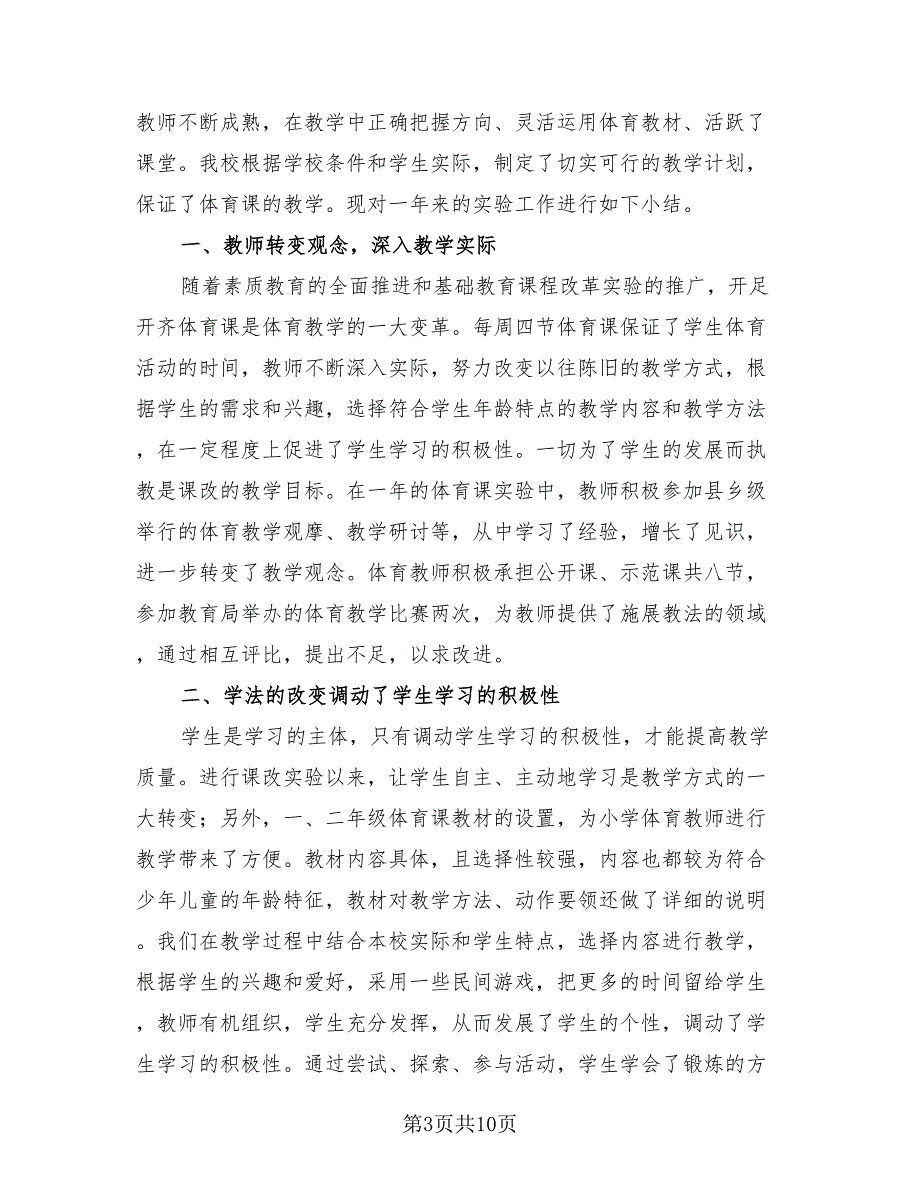 教师不断成熟，在教学中正确把握方向、灵活运用体育教材、活跃了
课堂。我校根据学校条件和学生实际，制定了切实可行的教学计划，
保证了体育课的教学。现对一年来的实验工作进行如下小结。
一、教师转变观念，深入教学实际
随着素质教育的全面推进和基础教育课程改革实验的推广，开足
开齐体育课是体育教学的一大变革。每周四节体育课保证了学生体育
活动的时间，教师不断深入实际，努力改变以往陈旧的教学方式，根
据学生的需求和兴趣，选择符合学生年龄特点的教学内容和教学方法
，在一定程度上促进了学生学习的积极性。一切为了学生的发展而执
教是课改的教学目标。在一年的体育课实验中，教师积极参加县乡级
举行的体育教学观摩、教学研讨等，从中学习了经验，增长了见识，
进一步转变了教学观念。体育教师积极承担公开课、示范课共八节，
参加教育局举办的体育教学比赛两次，为教师提供了施展教法的领域
，通过相互评比，提出不足，以求改进。
二、学法的改变调动了学生学习的积极性
学生是学习的主体，只有调动学生学习的积极性，才能提高教学
质量。进行课改实验以来，让学生自主、主动地学习是教学方式的一
大转变；另外，一、二年级体育课教材的设置，为小学体育教师进行
教学带来了方便。教材内容具体，且选择性较强，内容也都较为符合
少年儿童的年龄特征，教材对教学方法、动作要领还做了详细的说明
。我们在教学过程中结合本校实际和学生特点，选择内容进行教学，
根据学生的兴趣和爱好，采用一些民间游戏，把更多的时间留给学生
，教师有机组织，学生充分发挥，从而发展了学生的个性，调动了学
生学习的积极性。通过尝试、探索、参与活动，学生学会了锻炼的方
第3页共10页